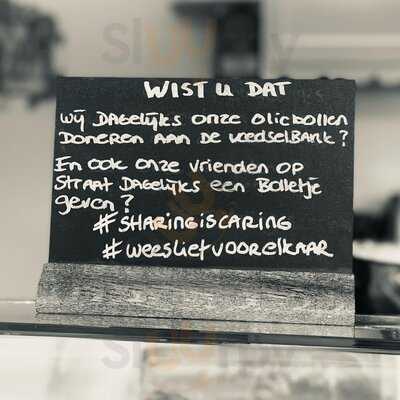 WIST U DAT
Wij DAGELIJKS ONZE OLIEBOLLEN
DONEREN AAN DE VOEDSELBANK?
En OOK ONZE VRIENDEN OP
STRAAT DAGELIJKS EEN BOLLETJE
geven?
#SHARINGISCARING
#WEESLIEFVOORELKAAR